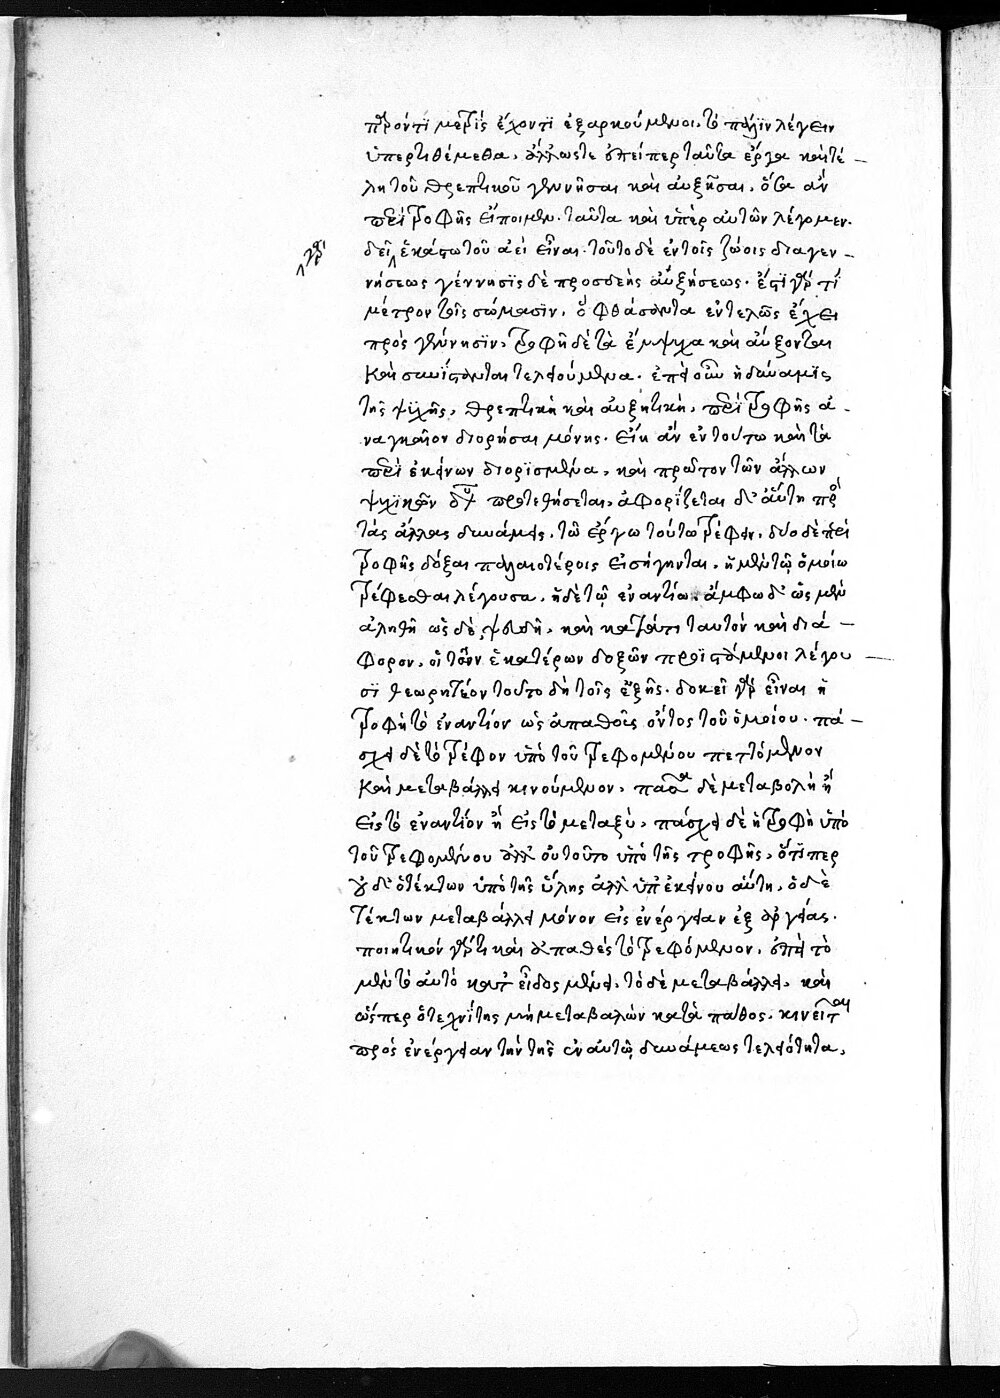 παρόντι μερὶς ἔχοντι ἐξαρκούμενοι, τὸ πάλϊν λέγειν
ὑπερτιθέμεθα, ἄλλωςτε ἐπείπερ ταῦτα ἔργα καὶ τέ-
λη τοῦ θρεπτικοῦ γεννῆσαι καὶ αὐξῆσαι, ὅσα ἂν
περὶ τροφῆς εἴποιμεν, ταῦτα καὶ ὑπὲρ αὐτῶν λέγομεν.
γὰρ
δεῖ ἑκάστω τοῦ ἀεὶ εἶναι. τοῦτο δὲ ἐν τοῖς ζώοις διαγεν-
νήσεως γέννησϊς δὲ προσδεὴς αὐξήσεως. ἔστι γάρ τι
μέτρον τοῖς σώμασϊν, ὃ φθάσαντα ἐντελῶς ἔχει
πρὸς γέννησϊν, τροφῆ δὲ τὰ ἔμψυχα καὶ αὔξονται
καὶ συνίστανται τελειούμενα. ἐπεὶ οὖν ἡ δύναμϊς
τῆς ψυχῆς, θρεπτικὴ καὶ αὐξητικὴ, περὶ τροφῆς ἀ-
ναγκαῖον διορῆσαι μόνης. εἴη ἂν ἐν τούτω καὶ τὰ
περὶ ἐκείνων διορϊσμένα, καὶ πρῶτον τῶν ἄλλων
ψυχϊκῶν προτεθήσεται, ἀφορίζεται δ' αὕτη πρὸς
τὰς ἄλλας δυνάμεις, τῶ ἔργω τούτω τρέφειν, δύο δὲ περὶ
τροφῆς δόξαι παλαιοτέροις εἰσήγηνται, ἡ μὲν τῷ ὁμοίω
τρέφεσθαι λέγουσα, ἡ δὲ τῷ ἐναντίω. ἄμφω δ' ὡς μὲν
ἀληθῆ ὡς δὲ ψευδῆ, καὶ κατά τι ταυτὸν καὶ διά-
φορον, οἱ τοῖνυν ἑκατέρων δοξῶν προϊστάμενοι λέγου
σϊ θεωρητέον τοῦτο δὴ τοῖς ἑξῆς. δοκεῖ γὰρ εἶναι ἡ
τροφὴ τὸ ἐναντίον ὡς ἀπαθοῦς ὄντος τοῦ ὁμοίου. πά-
σχει δὲ τὸ τρέφον ὑπὸ τοῦ τρεφομένου πεττόμενον
καὶ μεταβάλλει κινούμενον, πᾶσα δὲ μεταβολὴ ἢ
εἰς τὸ ἐναντίον ἢ εἰς τὸ μεταξὺ, πάσχει δὲ ἡ τροφὴ ὑπὸ
τοῦ τρεφομένου ἀλλ' οὐ τοῦτο ὑπὸ τῆς τροφῆς, ὅτϊπερ
οὐδ' ὁ τέκτων ὑπὸ τῆς ὕλης ἀλλ' ὑπ' ἐκείνου αὕτη, ὁ δὲ
τέκτων μεταβάλλει μόνον εἰς ἐνέργειαν ἐξ ἀργείας.
ποιητικόν γάρ τι καὶ ἀπαθὲς τὸ τρεφόμενον, ἐπεὶ τὸ
μὲν τὸ αὐτὸ κατ' εἶδος μένει, τὸ δὲ μεταβάλλει, καὶ
ὥςπερ ὁ τεχνίτης μὴ μεταβαλὼν κατὰ πάθος, κινεῖται
πρὸς ἐνέργειαν τὴν τῆς ἐν αὐτῷ δυνάμεως τελειότητα,